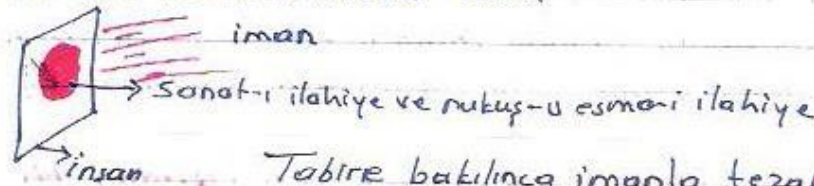 iman
Sanat-ı ilahiye ve nukuş-u esma-i ilahiye
insan
Tabire bakılınca imanla